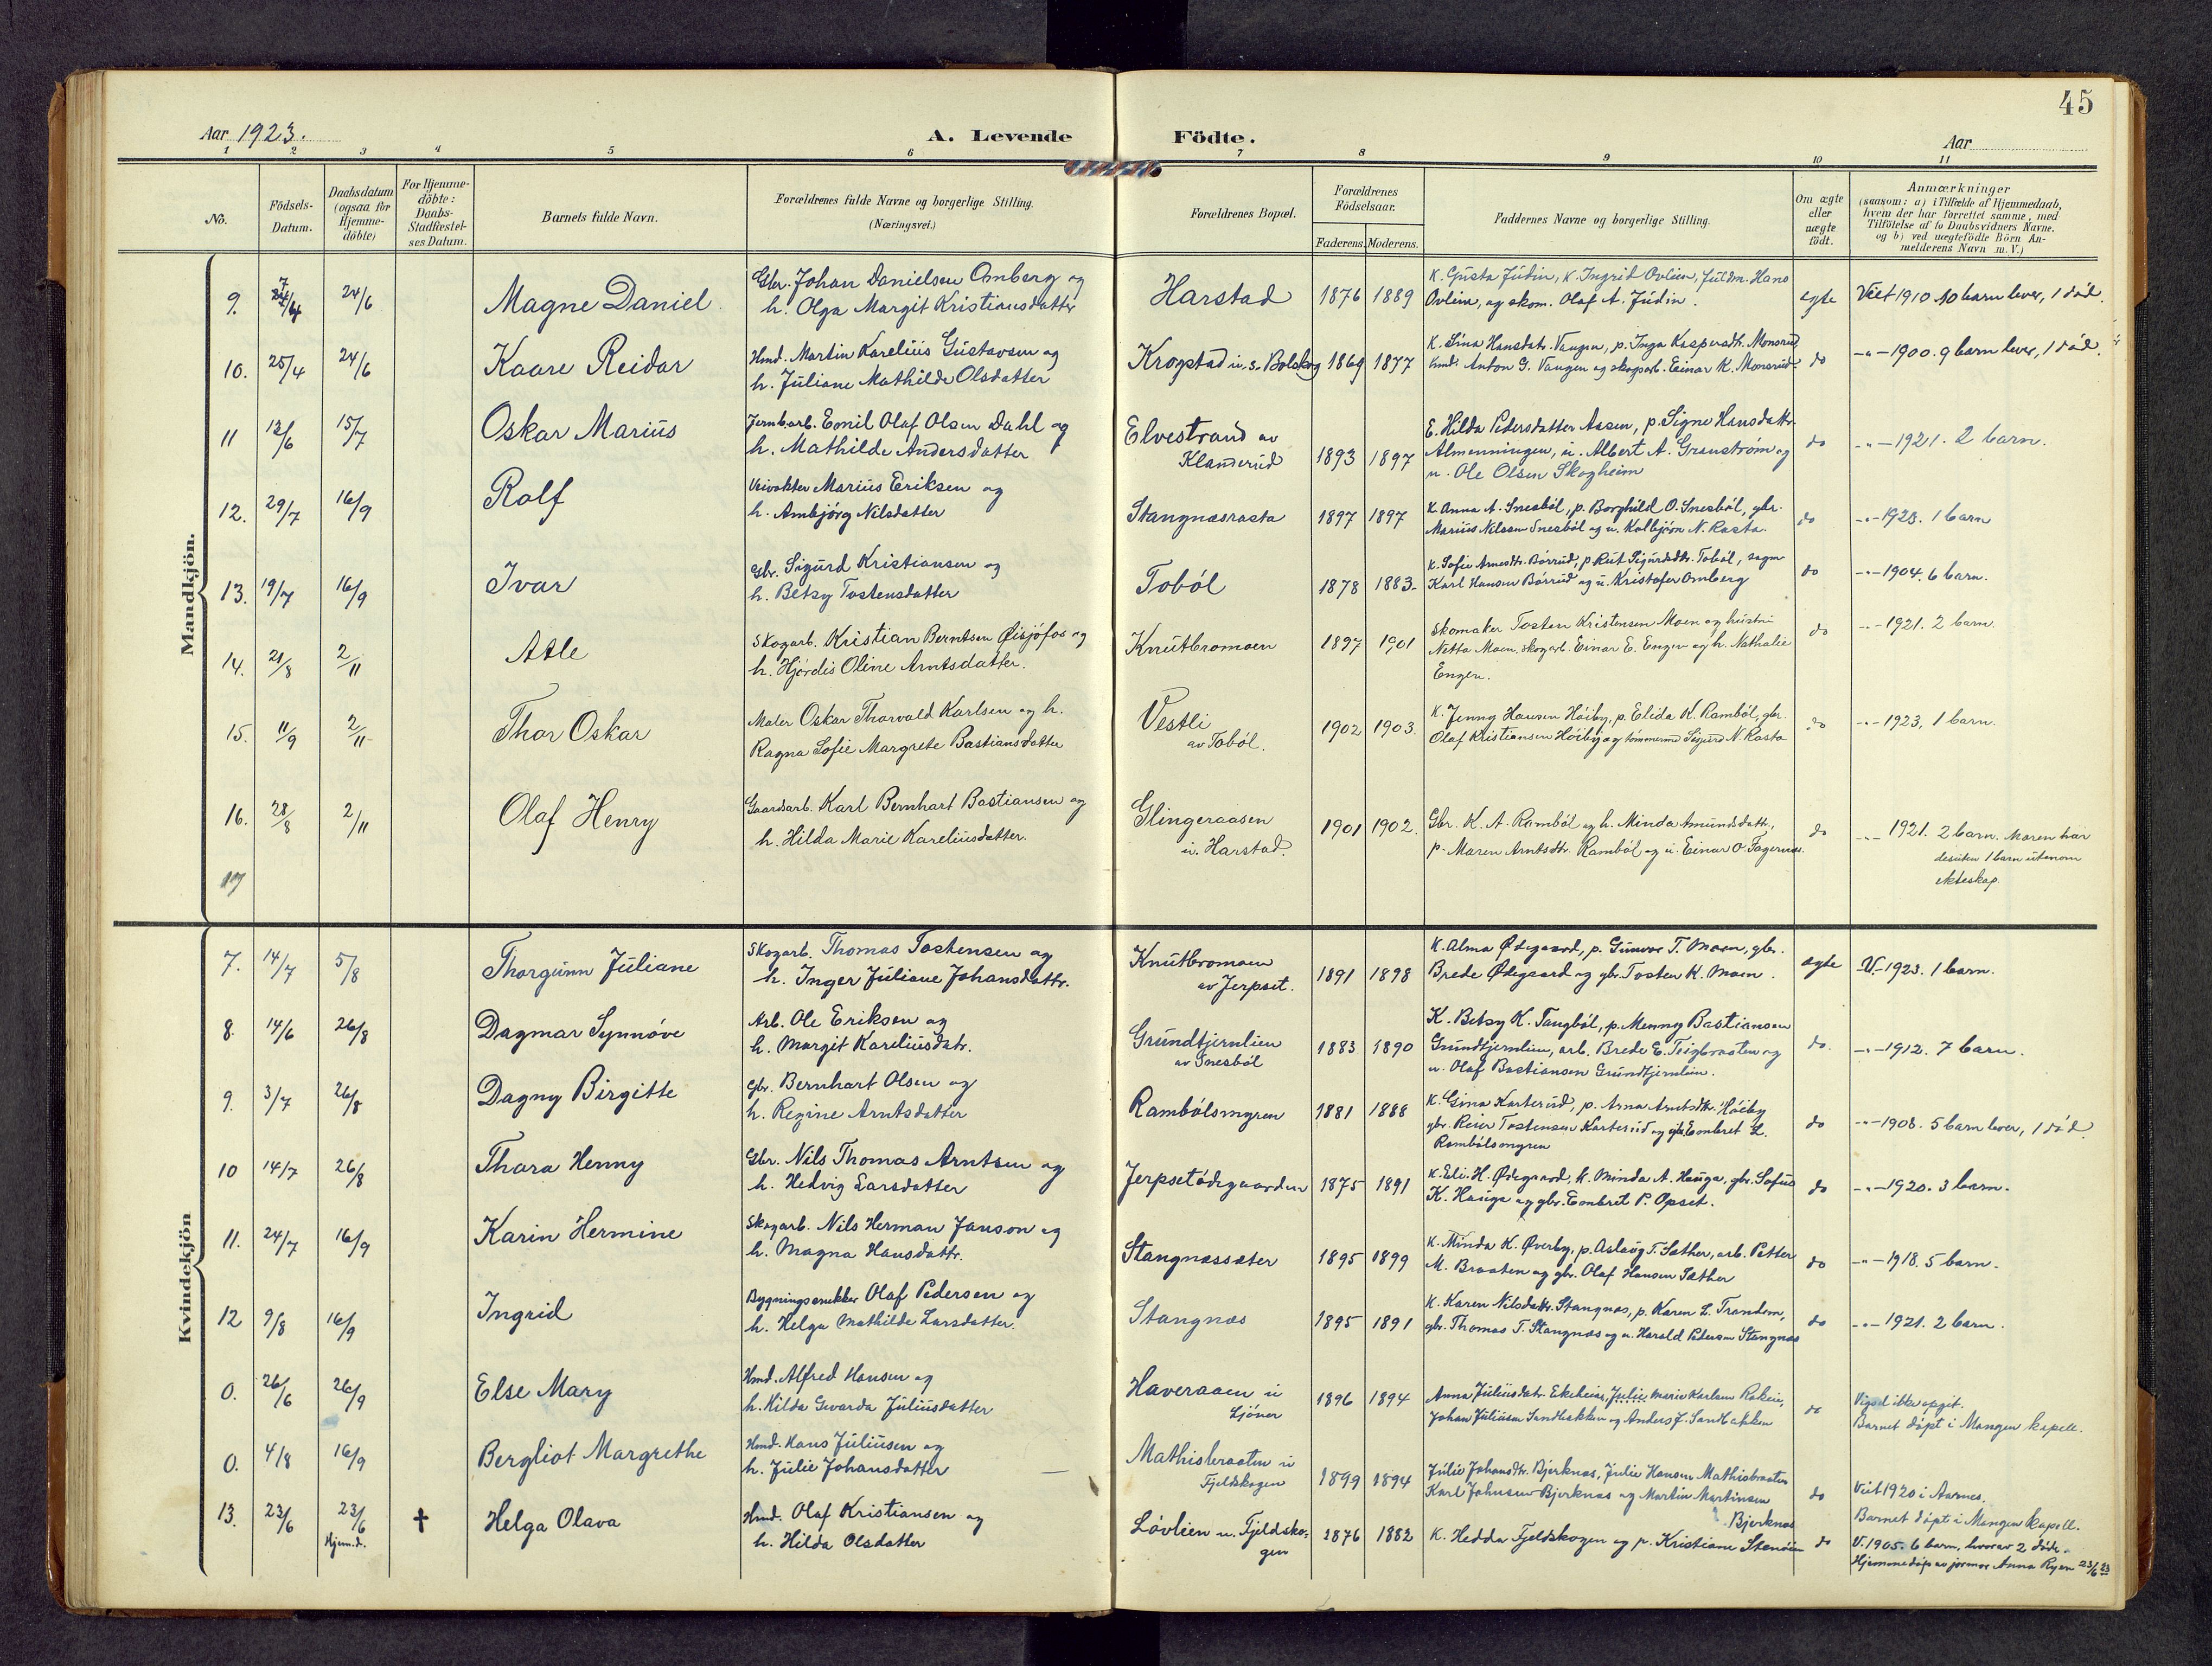 45
Aar 1923.
A. Levende Födte.
Aar
1 2 3 4 5 6 7 8 9 10 11
No.
Födsels-Datum.
Daabsdatum (ogsaa for Hjemme-döbte)
For Hjemme-döbte: Daabs-Stadfæstel-ses Datum.
Barnets fulde Navn.
Forældrenes fulde Navne og borgerlige Stilling.
(Næringsvei.)
Forældrenes Bopæl.
Forældrenes Födselsaar.
Faderens. Moderens.
Faddernes Navne og borgerlige Stilling.
Om ægte eller uægte födt.
Anmærkninger
(saasom: a) i Tilfælde af Hjemmedaab, hvem der har forrettet samme, med Tilföielse af to Daabsvidners Navne. og b) ved uægtefödte Börn An-melderens Navn m. V.)
Mandkjön.
9. 7/4 24/6 Magne Daniel
Gbr. Johan Danielsen Omberg og
h. Olga Margit Kristiansdatter
Harstad 1876 1889
K. Gusta Judin, K. Ingrid Ovlien, fuldm. Hans
Ovlien, og skom. Olaf A. Judin.
egte Viet 1910 10 barn lever, 1 död.
10. 25/4 24/6 Kaare Reidar
Hmd. Martin Karelius Gustavsen og
h. Juliane Mathilde Olsdatter
Krogstad u. s. Bolskog 1869 1877
K. Lina Hansdatr. Vangen, p. Inga Kaspersdtr. Monsrud,
hmd. Anton G. Vangen og skogarb. Einar K. Monsrud.
do -"- 1900. 9 barn lever, 1 död.
11 12/6 15/7 Oskar Marius
Jernb.arb. Emil Olaf Olsen Dahl og
h. Mathilde Andersdatter
Elvestrand av
Klanderud 1893 1897
E. Hilda Pedersdatter Aasen, p. Signe Hansdattr.
Almenningen, u. Albert A. Granström og
u. Ole Olsen Skogheim
do -"- 1921. 2 barn.
12. 29/7 16/9 Rolf
Veivokter Marius Eriksen og
h. Ambjörg Nilsdatter
Stangnæsrasta 1897 1897
K. Anna A. Snesböl, p. Borghild O. Snesböl, gbr.
Marius Nilsen Snesböl og u. Kolbjörn N. Rasta.
do -"- 1923. 1 barn
13. 19/7 16/9 Ivar
Gbr. Sigurd Kristiansen og
h. Betsy Tostensdatter
Toböl 1878 1883.
K. Sofie Arnesdtr. Börrud, p. Rut Sigurdsdtr. Toböl, sagm
Karl Hansen Börrud og u. Kristofer Omberg
do -"- 1904. 6 barn.
14. 21/8 2/11 Atle
Skogarb. Kristian Berntsen Öisjöfos og
h. Hjördis Oline Arntsdatter.
Knutbromoen 1897 1901
Skomaker Tosten Kristensen Moen og hustru
Netta Moen, skogarb. Einar E. Engen og h. Nathalie
Engen.
do -"- 1921. 2 barn.
15. 11/9 2/11 Thor Oskar
Maler Oskar Thorvald Karlsen og h.
Ragna Sofie Margrete Bastiansdatter
Vestli
av Toböl. 1902 1903.
K. Jenny Hansen Höiby, p. Elida K. Ramböl, gbr.
Olaf Kristiansen Höiby og tömmermd Sigurd N. Rasta
do -"- 1923, 1 barn.
16. 28/8 2/11 Olaf Henry
Gaardsarb. Karl Bernhart Bastiansen og
h. Hilda Marie Kareliusdatter.
Slingeraasen
u. Harstad. 1901 1902.
Gbr. K. A. Ramböl og h. Minda Amundsdatt.,
p. Maren Arntsdtr. Ramböl og u. Einar O. Fagernæs.
do -"- 1921. 2 barn. Moren har
desuten 1 barn utenom
ekteskap.
17
Kvindekjön
7. 14/7 5/8 Thorgunn Juliane
Skogarb. Thomas Tostensen og
h. Inger Juliane Johansdattr.
Knutbromoen
av Jerpset. 1891 1898
K. Alma Ödegaard, p. Gunvor T. Moen, gbr.
Brede Ödegaard og gbr. Tosten K. Moen.
egte V.-1923. 1 barn.
8. 14/6 26/8 Dagmar Synnöve
Arb. Ole Eriksen og
h. Margit Kareliusdatr.
Grundtjernlien
av Snesböl 1883 1890
K. Betsy K. Tangböl, p. Menny Bastiansen
Grundtjernlien, arb. Brede E. Teigbraaten og
u. Olaf Bastiansen Grundtjernlien.
do. -"- 1912. 7 barn.
9. 3/7 26/8 Dagny Birgitte
Gbr. Bernhart Olsen og
h. Regine Arntsdatter
Rambölsmyren 1881 1888
K. Gina Karterud, p. Anna Arntsdtr. Höiby
gbr. Reier Tostensen Karterud og gbr. Embret L.
Rambölsmyren
do -"- 1908. 5 barn lever, 1 död.
10 14/7 26/8 Thora Henny
Gbr. Nils Thomas Arntsen og
h. Hedvig Larsdatter
Jerpsetödegaarden 1875 1891
K. Eli. H. Ödegaard, k. Minda A. Hauga, gbr. Sofus
K. Hauga og gbr. Embret P. Opset.
do -"- 1920. 3 barn.
11. 24/7 16/9 Karin Hermine
Skogarb. Nils Herman Janson og
h. Magna Hansdattr.
Stangnæssæter 1895 1899
K. Minda K. Överby, p. Aslaug T. Sæther, arb. Petter
M. Braaten og gbr. Olaf Hansen Sæther
do -"- 1918. 5 barn.
12 9/8 16/9 Ingrid
Bygningssnekker Olaf Pedersen og
h. Helga Mathilde Larsdatter.
Stangnæs 1895 1891
K. Karen Nilsdattr. Stangnæs, p. Karen L. Trandem,
gbr. Thomas T. Stangnæs og u. Harald Pedersen Stangnæs
do -"- 1921. 2 barn.
0. 26/6 26/9 Else Mary
Hmd. Alfred Hansen og
h. Hilda Gevarda Juliusdatter
Haveraaen u
Ljöner 1896 1894
Anna Juliusdatr. Ekeheier, Julie Marie Karlsen Rakeie,
Johan Juliusen Sandbakken og Anders J. Sandbakken
do Vigsel ikke opgit.
Barnet döpt i Mangen kapell.
0. 4/8 16/9 Bergliot Margrethe
Hmd. Hans Juliusen og
h. Julie Johansdatter
Mathisbraaten u
Fjeldskogen 1899 1894
Julie Johansdtr. Bjerknæs, Julie Hansen Mathisbraaten
Karl Johnsen Bjerknæs og Martin Martinsen
Bjerknæs
do Viet 1920 i Aarnes.
Barnet döpt i Mangen kapell.
13. 23/6 23/6 Hjem.d. † Helga Olava
Hmd. Olaf Kristiansen og
h. Hilda Olsdatter
Lövlien u. Fjeldsko-
gen 1876 1882
K. Hedda Fjeldskogen og p. Kristiane Stenöien
do V. 1905. 6 barn, hvorav 2 döde.
Hjemmedöp av jormor Anna Ryen 23/6 23